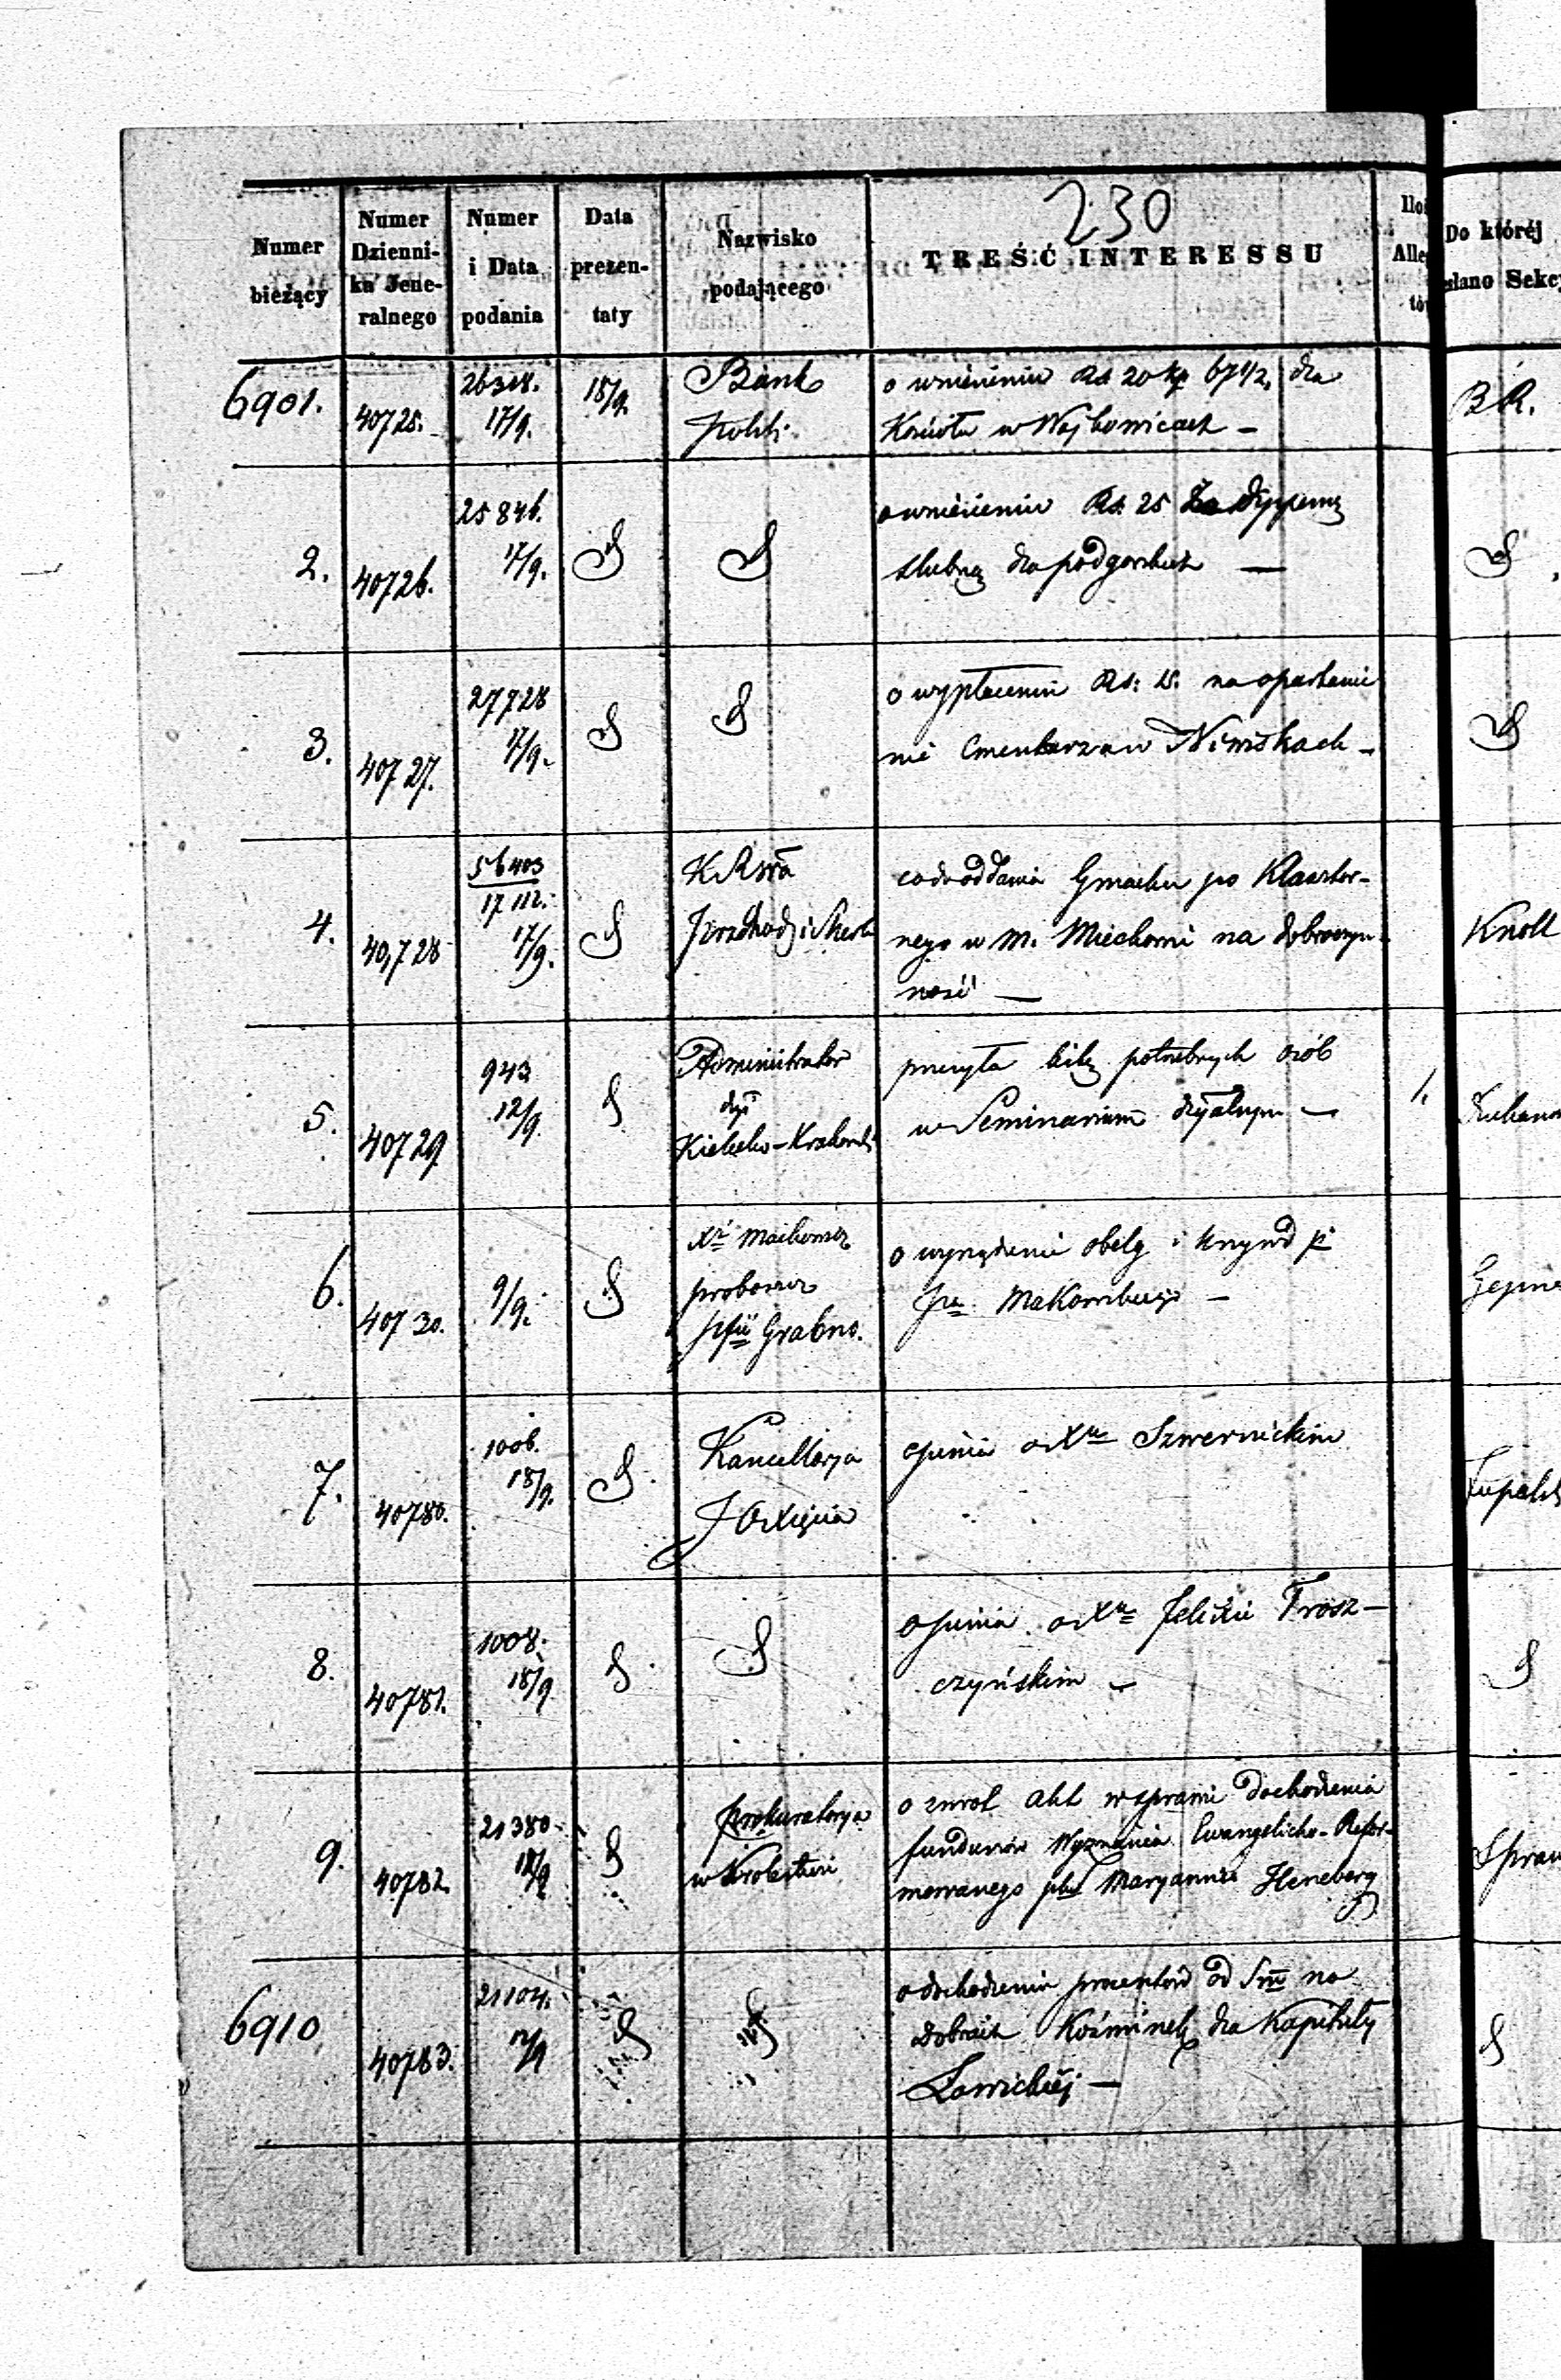 230
Numer bieżący
Numer Dzienni- ka Jene- ralnego
Numer i Data podania
Data prezen- taty
Nazwisko podającego
TREŚĆ INTERESSU
Do któréj
Sekc
6901.
40725.
26308.
17/9.
18/9.
Bank
Polski
o wniesieniu Rs 20 kp 67 1/2. dla
Kościoła w
B.R.
2.
40726.
25846.
17/9.
o wniesieniu Rs. 25 za dyspensę
ślubną dla podgorskich —
3.
40727.
27728
17/9.
o wypłaceniu Rs: 15. na oparkanie
nie Cmentarza w
4.
40,728
56403
17112.
17/9.
K R
Przchod i Skarbu
co do oddania Gmachu po Klasztor-
nego w m. Miechowie na dobroczyn-
ność —
Knoll
5.
40729.
943
12/9
Administrator
dyi
Kielecko-Krakowski
przesyła listę potrzebnych osób
w Seminarium dyalnym —
1.
6.
40730.
9/9.
Xs
proboszcz
pfii Grabno.
o wyrządzeniu obelg i krzywd pz
Pa Makomskiego —
7.
40780.
1006.
18/9.
Kancellarya
J O Xięcia
opinia o Xu Szwernickim
8.
40781.
1008.
18/9
opinia o Xu Felixie Trosz-
czyńskim —
9.
40782.
21380.
18/9
Prokuratorya
w Królestwie
o zwrot akt w sprawie dochodzenia
funduszów Wyznania Ewangelicko-Refor-
mowanego pko Maryannie Heneberg
Spraw
6910
40783.
21104.
o dochodzenia procentów od Sm na
dobrach Koźminek dla Kapituły
Łowickiéj —